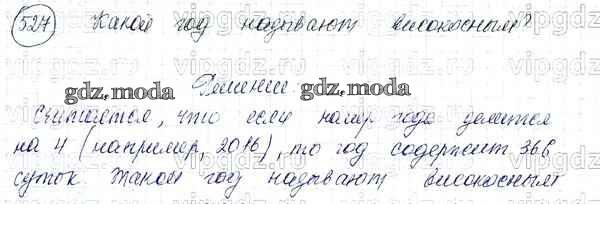 527 Какой год называют високосным?
Решение
gdz.moda gdz.moda
Считается, что если номер года делится
на 4 (например, 2016), то год содержит 366
суток. Такой год называют високосным